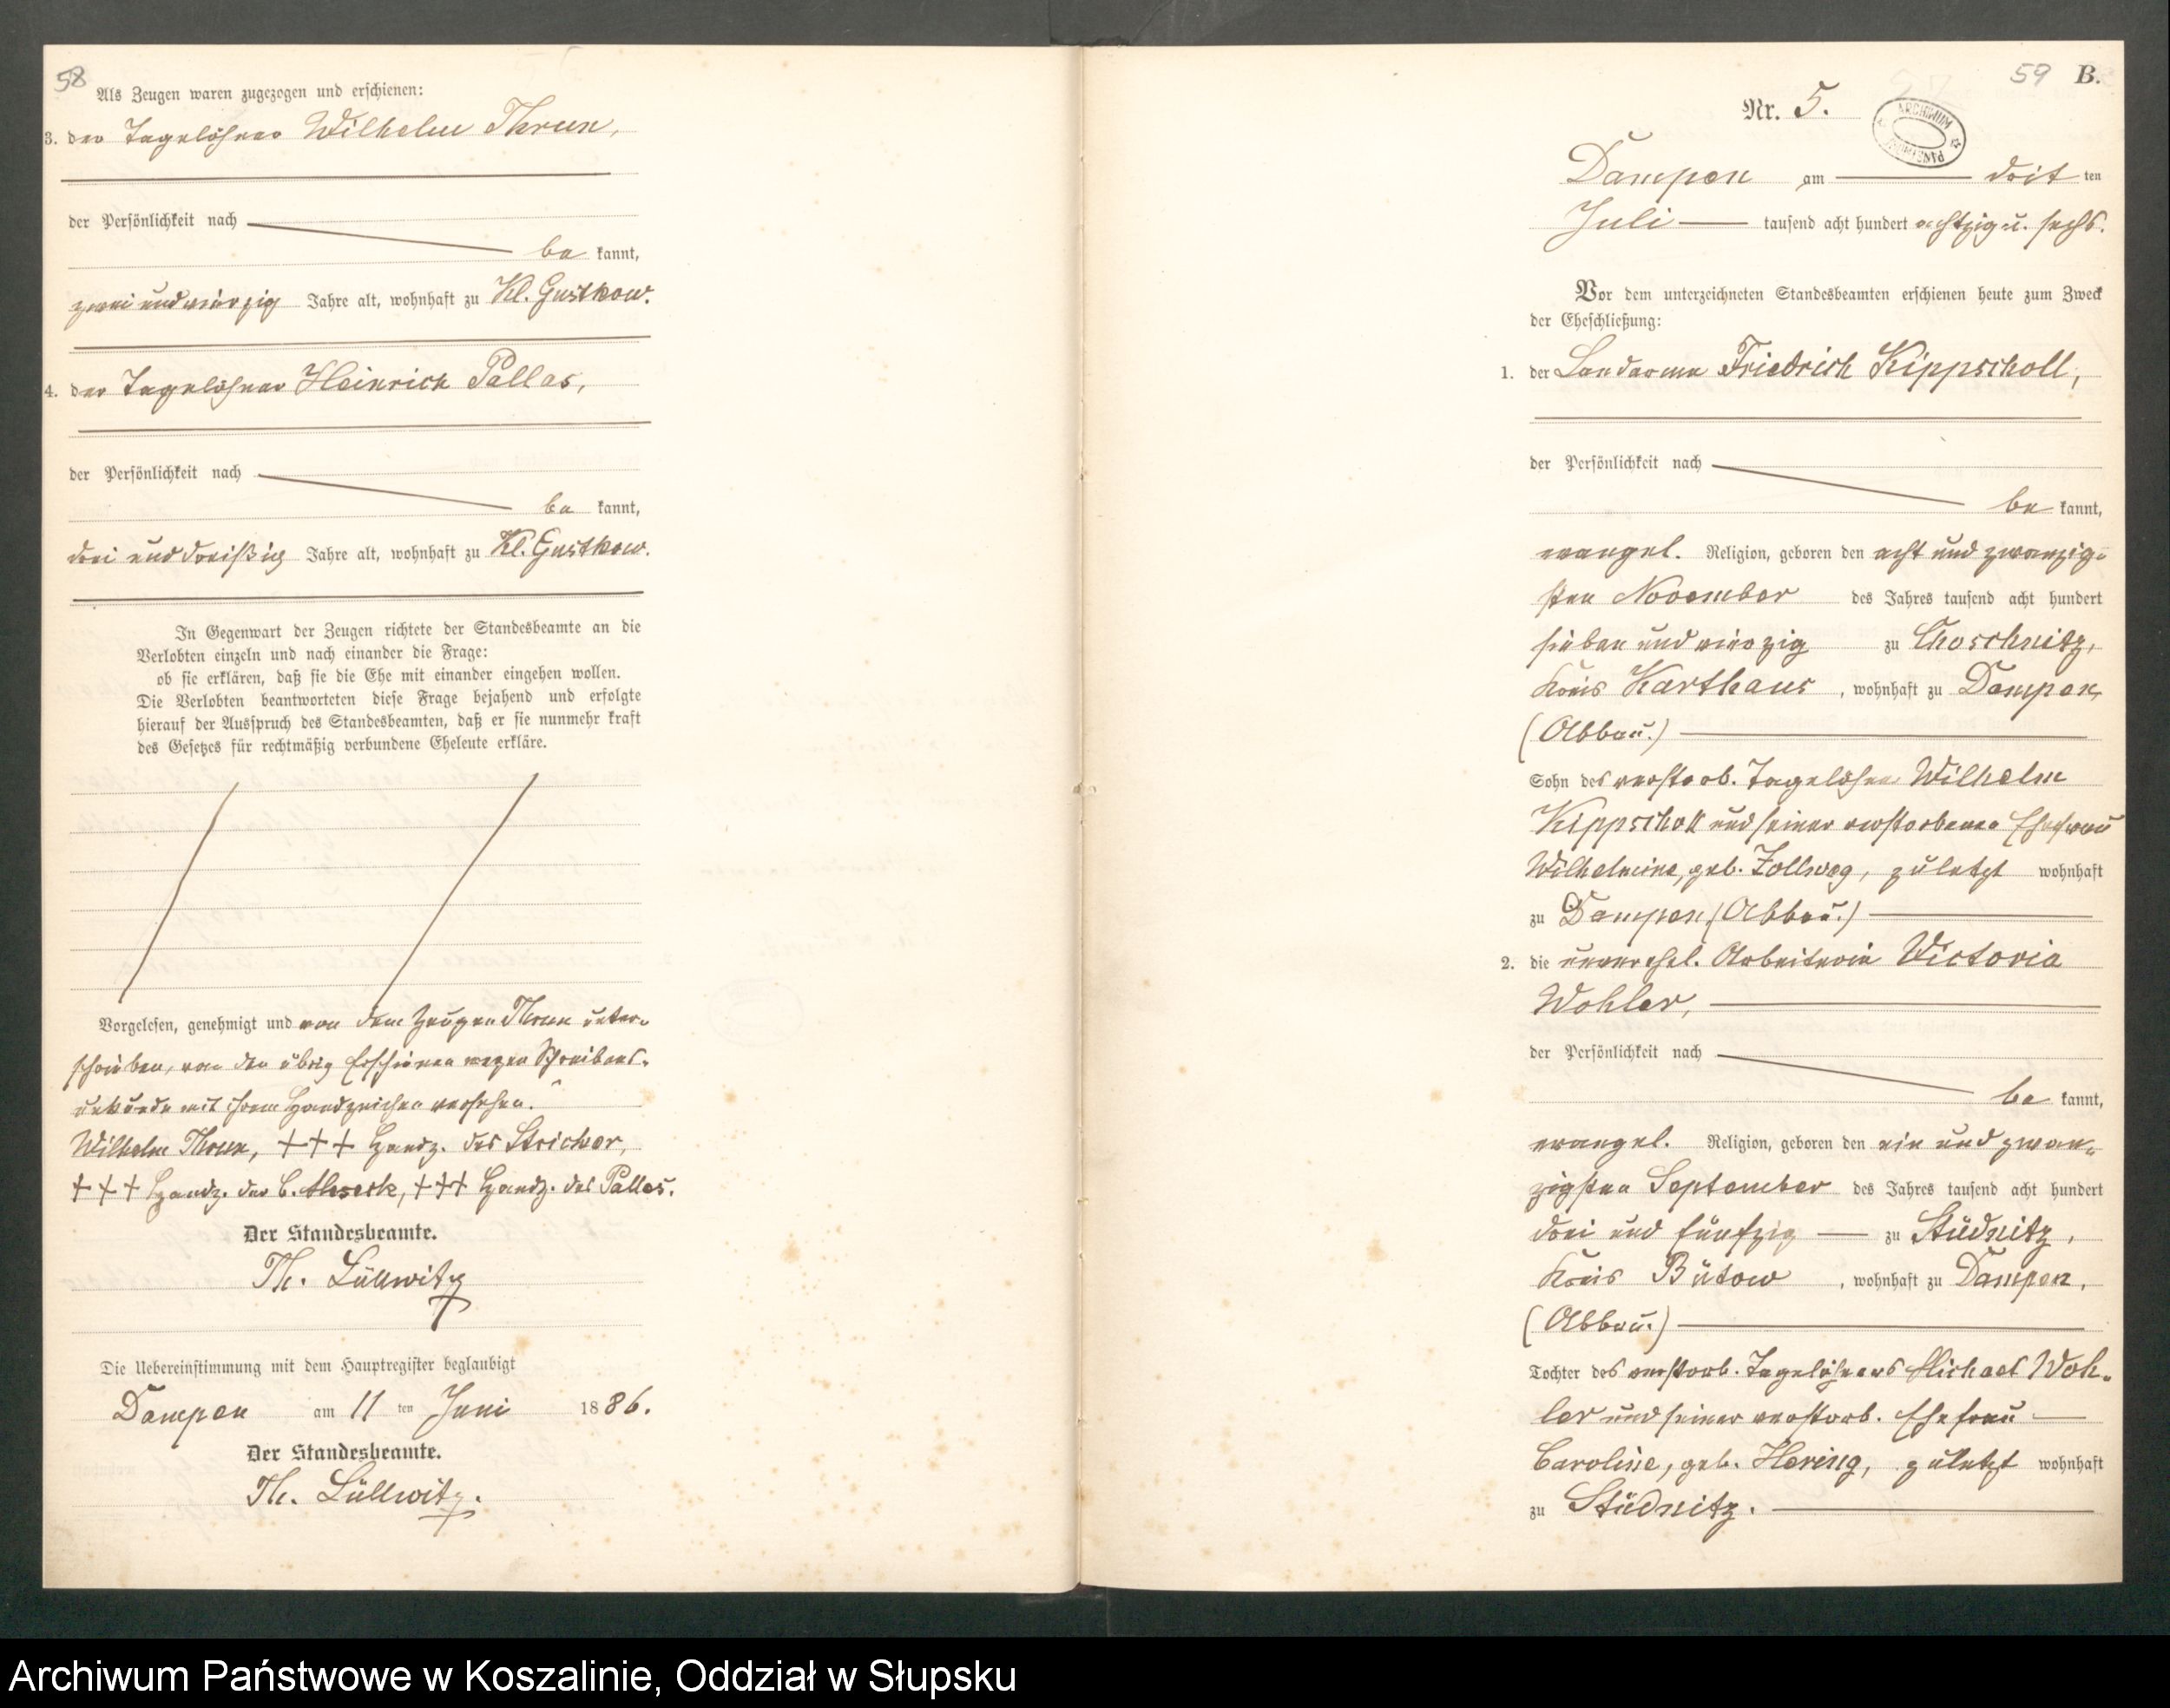 58
Als Zeugen waren zugezogen und erschienen:
3. der Tagelöhner Wilhelm Thrun,
der Persönlichkeit nach
be kannt,
zwei und vierzig Jahre alt, wohnhaft zu Kl. Gustkow.
4. der Tagelöhner Heinrich Pallas,
der Persönlichkeit nach
be kannt,
drei und dreißig Jahre alt, wohnhaft zu Kl. Gustkow.
In Gegenwart der Zeugen richtete der Standesbeamte an die
Verlobten einzeln und nach einander die Frage:
ob sie erklären, daß sie die Ehe mit einander eingehen wollen.
Die Verlobten beantworteten diese Frage bejahend und erfolgte
hierauf der Ausspruch des Standesbeamten, daß er sie nunmehr kraft
des Gesetzes für rechtmäßig verbundene Eheleute erkläre.
Vorgelesen, genehmigt und von dem Zeugen Thrun unter-
schrieben, von den übrig Erschienen wegen Schreibens-
unkunde mit ihrem Handzeichen versehen.
Wilhelm Thrun, +++ Handz. des Stricker,
+++ Handz. der C. +++ Handz. des Pallas.
Der Standesbeamte.
Th. Lüllwitz
Die Uebereinstimmung mit dem Hauptregister beglaubigt
Dampen am 11 ten Juni 1886.
Der Standesbeamte.
Th. Lüllwitz.
59 B.
Nr. 5.
ARCHIWUM PAŃSTWOWE
Dampen am drit ten
Juli tausend acht hundert achtzig u. sechs.
Vor dem unterzeichneten Standesbeamten erschienen heute zum Zweck
der Eheschließung:
1. der Landarme Friedrich Kippscholl,
der Persönlichkeit nach
be kannt,
evangel. Religion, geboren den acht und zwanzig-
sten November des Jahres tausend acht hundert
sieben und vierzig zu Choschnitz,
Kreis Karthaus, wohnhaft zu Dampen,
(Abbau.)
Sohn des verstorb. Tagelöhner Wilhelm
Kippscholl und seiner verstorbenen Ehefrau
Wilhelmine, geb. Zollweg, zuletzt wohnhaft
zu Dampen, (Abbau.)
2. die unverehel. Arbeiterin Victoria
Wohler,
der Persönlichkeit nach
be kannt,
evangel. Religion, geboren den ein und zwan-
zigsten September des Jahres tausend acht hundert
drei und fünfzig zu Stüdnitz,
Kreis Bütow, wohnhaft zu Dampen,
(Abbau.)
Tochter des verstorb. Tagelöhners Michael Woh-
ler und seiner verstorb. Ehefrau
Caroline, geb. Hering, zuletzt wohnhaft
zu Stüdnitz.
Archiwum Państwowe w Koszalinie, Oddział w Słupsku